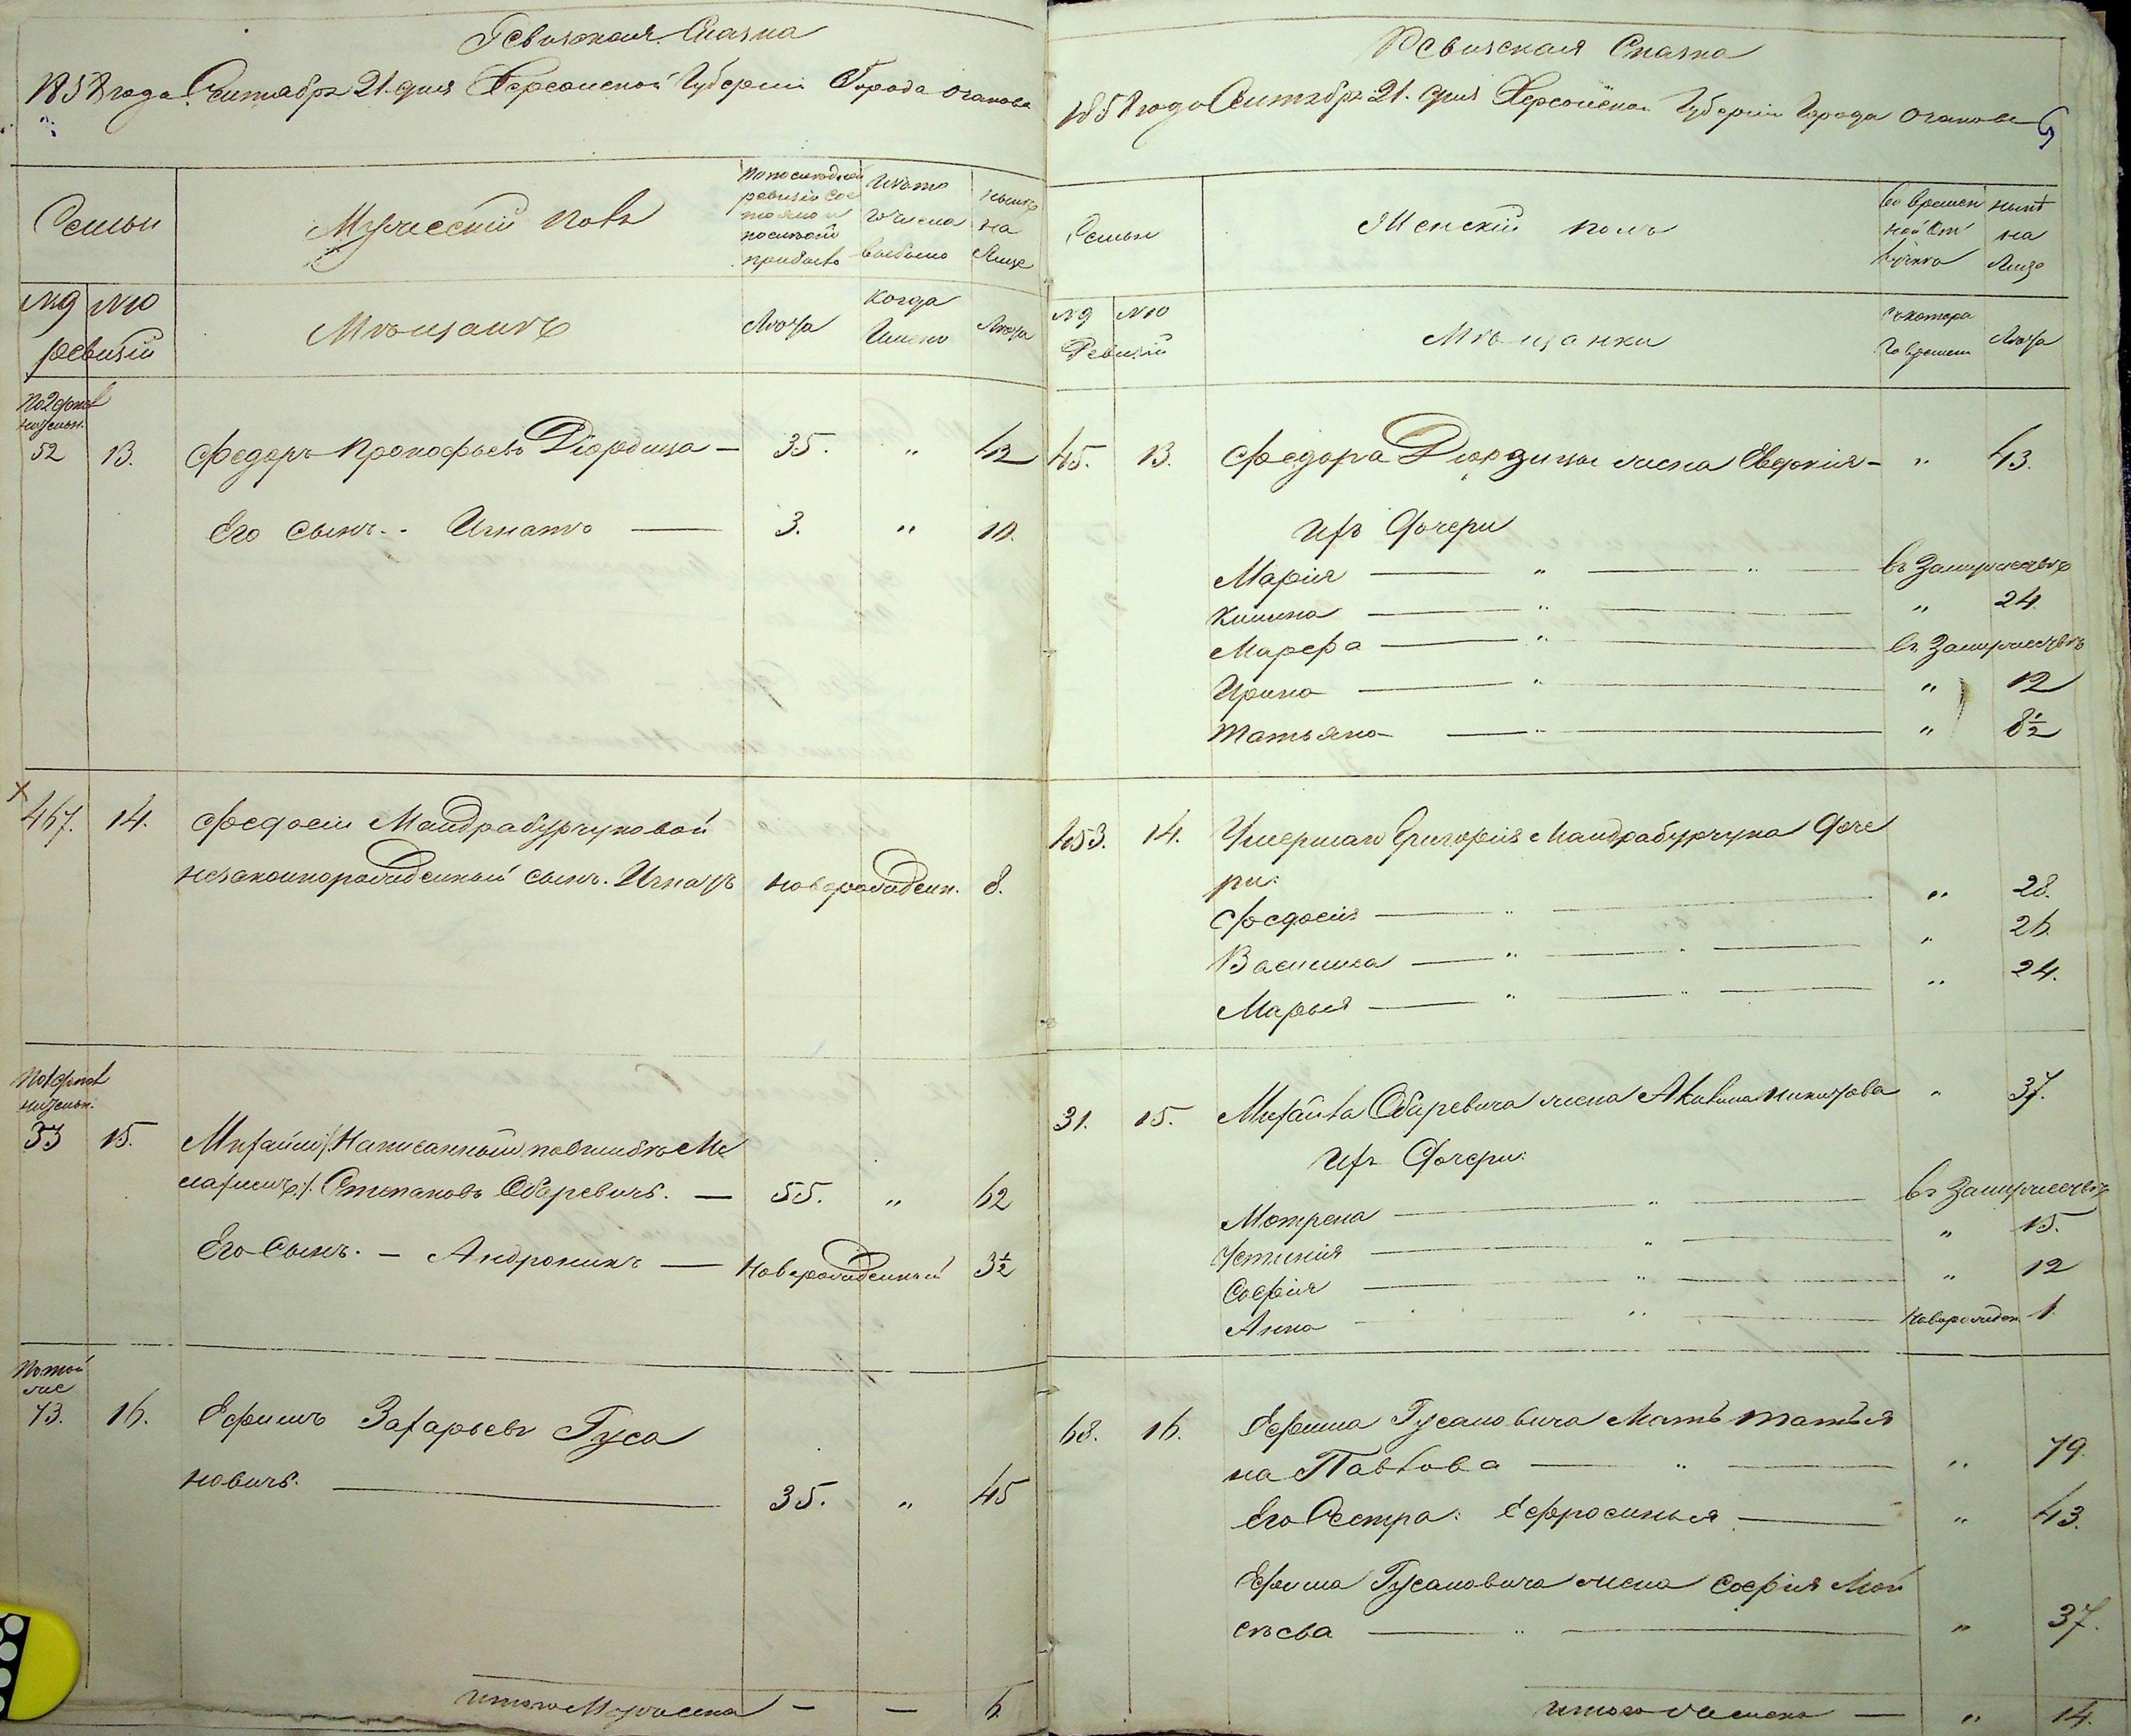 Ревизская Сказка
1858 года Сентября 21. дня Херсонской Губернии Города Очакова
Семьи
Мужеский полъ
По последней ревизіи состояло и после той прибыло
Изъ того числа выбыло
ныне на Лицо
№ 9 №10
ревизіи
Мѣщанъ
Лета
Когда Именно
Лета
По 2 дополнительн.
52 13. Федоръ Прокофьевъ Діордица — 35. „ 42
Его Сынъ.. Игнатъ — 3. „ 10.
467. 14. Федосіи Мандрабурчуковой
незаконнорожденный сынъ. Игнатъ новорожденн. 8.
По 1 дополнительн.
33 15. Михаилъ /: Написанный по ошибкѣ Ме
лафіемъ :/ Степановъ Обаревичъ. — 55. „ 62
Его Сынъ. — Андроникъ — Новорожденный 3½
По той же
73. 16. Ефимъ Захарьевъ Гуса
новичъ. — 35. „ 45
итого Мужеска — — 6.
Ревизская Сказка
1858 года Сентября 21. дня Херсонской Губерніи Города Очакова
Семьи
Женскій полъ
Во временной отлучке
ныне на Лицо
№ 9 №10
Ревизіи
Мѣщанки
съ котораго времени
Лета
45. 13. Федора Діордицы жена Евдокія — „ 43.
Ихъ Дочери
Марія — „ — „ — въ Замужествѣ
Килина — „ — „ 24.
Марфа — „ — въ Замужествѣ
Ирина — „ — „ 12
Татьяна — „ — „ 8½
453. 14. Умершаго Григорія Мандрабурчука Доче
ри:
Федосія — „ — „ 28.
Василиса — „ — „ — „ 26.
Марья — „ — „ — „ 24.
31. 15. Михаила Обаревича жена Акилина Никитова „ 37.
Ихъ Дочери:
Мотрена — „ — въ Замужествѣ
Устинія — „ — „ 15.
Софія — „ — „ 12
Анна — „ — Новорожден. 1.
68. 16. Ефима Гусановича Мать Татья
на Павлова — „ — „ 79.
Его Сестра: Ефросинья — „ 43.
Ефима Гусановича жена Софія Мои
сѣева — „ — „ 37.
итого женска — „ 14.